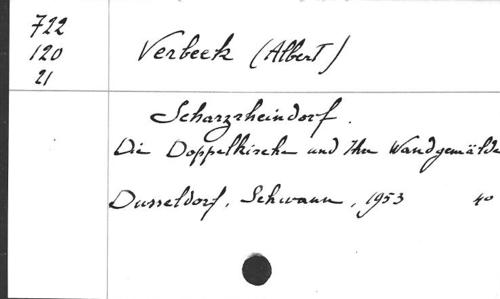 722
120
21
Verbeek (Albert)
Scharzrheindorf.
Die Doppelkirche und Ihre Wandgemälde
Dusseldorf, Schwann, 1953 40